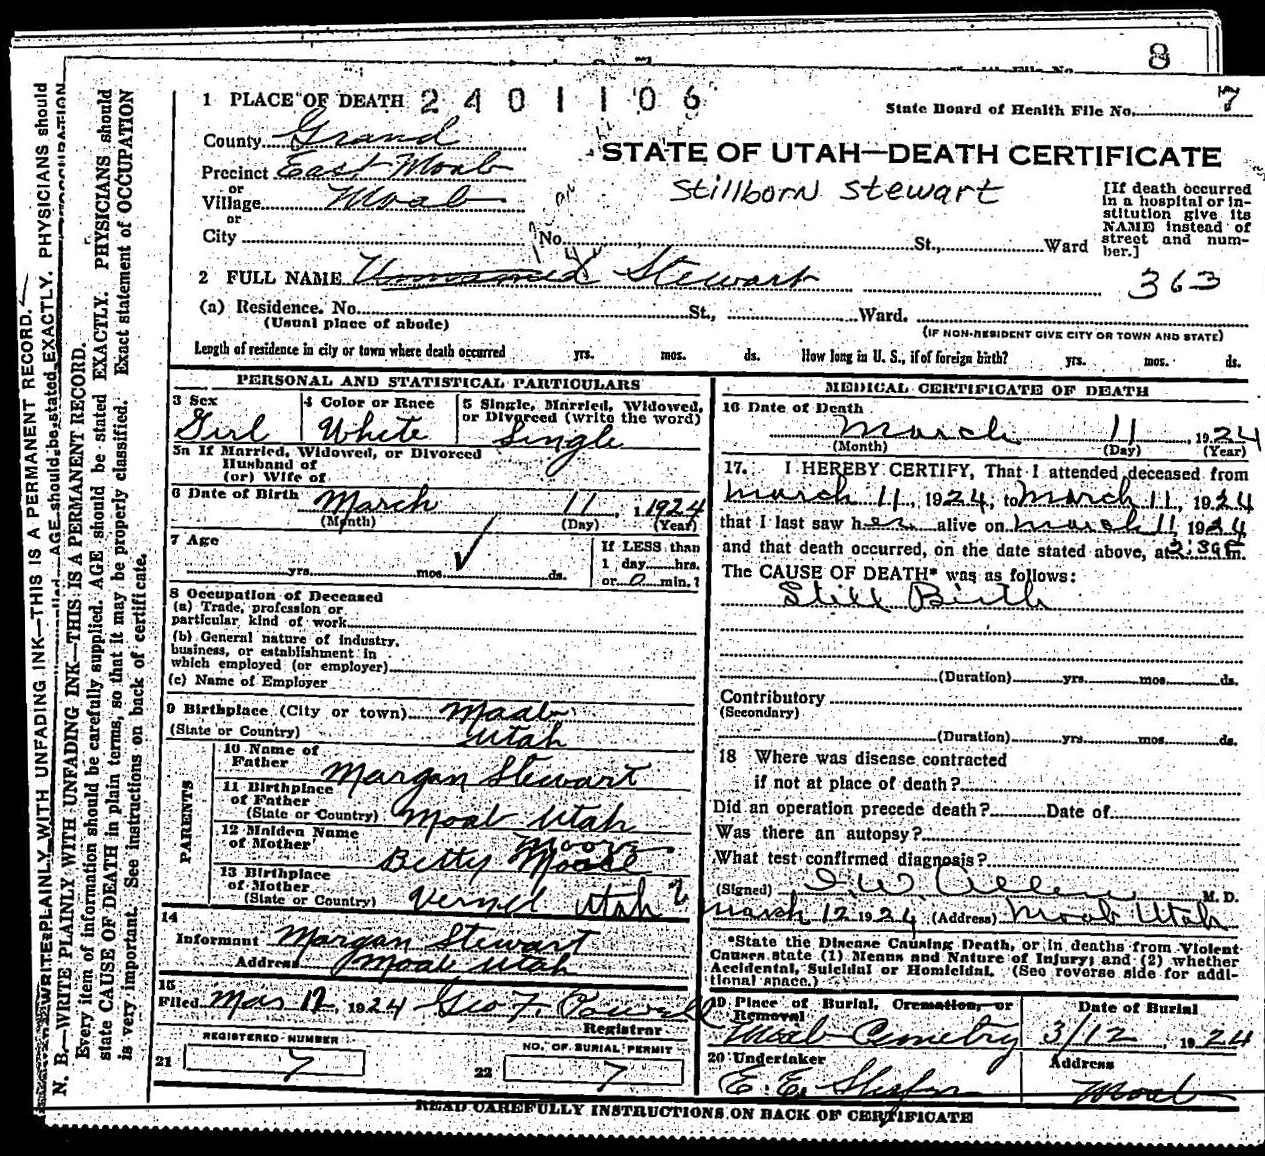 8
1 PLACE OF DEATH 2401106
State Board of Health File No. 7
County Grand
STATE OF UTAH—DEATH CERTIFICATE
Precinct East Moab
Stillborn Stewart
or
Village Moab
or
City No. St., Ward
[If death occurred in a hospital or institution give its NAME instead of street and number.]
2 FULL NAME Unnamed Stewart
363
(a) Residence. No. St., Ward.
(Usual place of abode)
(IF NON-RESIDENT GIVE CITY OR TOWN AND STATE)
Length of residence in city or town where death occurred yrs. mos. ds. How long in U. S., if of foreign birth? yrs. mos. ds.
PERSONAL AND STATISTICAL PARTICULARS
3 Sex
Girl
4 Color or Race
White
5 Single, Married, Widowed,
or Divorced (write the word)
Single
5a If Married, Widowed, or Divorced
Husband of
(or) Wife of
6 Date of Birth March 11, 1924
(Month) (Day) (Year)
7 Age
yrs. mos. ds.
If LESS than
1 day hrs.
or 0 min.?
8 Occupation of Deceased
(a) Trade, profession or
particular kind of work
(b) General nature of industry,
business, or establishment in
which employed (or employer)
(c) Name of Employer
9 Birthplace (City or town) Moab
(State or Country) Utah
PARENTS
10 Name of
Father Morgan Stewart
11 Birthplace
of Father
(State or Country) Moab Utah
12 Maiden Name
of Mother Betty Moore
13 Birthplace
of Mother
(State or Country) Vernel Utah
14
Informant Morgan Stewart
Address Moab Utah
15
Filed Mar 12, 1924 Geo F. Powell
Registrar
REGISTERED NUMBER
21 7
NO. OF BURIAL PERMIT
22 7
MEDICAL CERTIFICATE OF DEATH
16 Date of Death
March 11, 1924
(Month) (Day) (Year)
17. I HEREBY CERTIFY, That I attended deceased from
March 11, 1924, to March 11, 1924
that I last saw her alive on March 11, 1924
and that death occurred, on the date stated above, at 2:30 P m.
The CAUSE OF DEATH* was as follows:
Still Birth
(Duration) yrs. mos. ds.
Contributory
(Secondary)
(Duration) yrs. mos. ds.
18 Where was disease contracted
if not at place of death?
Did an operation precede death? Date of
Was there an autopsy?
What test confirmed diagnosis?
(Signed) I. W. Allen M. D.
March 12 1924 (Address) Moab Utah
*State the Disease Causing Death, or in deaths from Violent
Causes state (1) Means and Nature of Injury; and (2) whether
Accidental, Suicidal or Homicidal. (See reverse side for additional space.)
19 Place of Burial, Cremation, or
Removal
Moab Cemetry
Date of Burial
3/12, 1924
20 Undertaker
E. E. Shafer
Address
Moab
READ CAREFULLY INSTRUCTIONS ON BACK OF CERTIFICATE
N. B.—WRITE PLAINLY WITH UNFADING INK—THIS IS A PERMANENT RECORD.
Every item of information should be carefully supplied. AGE should be stated EXACTLY. PHYSICIANS should
state CAUSE OF DEATH in plain terms, so that it may be properly classified. Exact statement of OCCUPATION
is very important. See instructions on back of certificate.